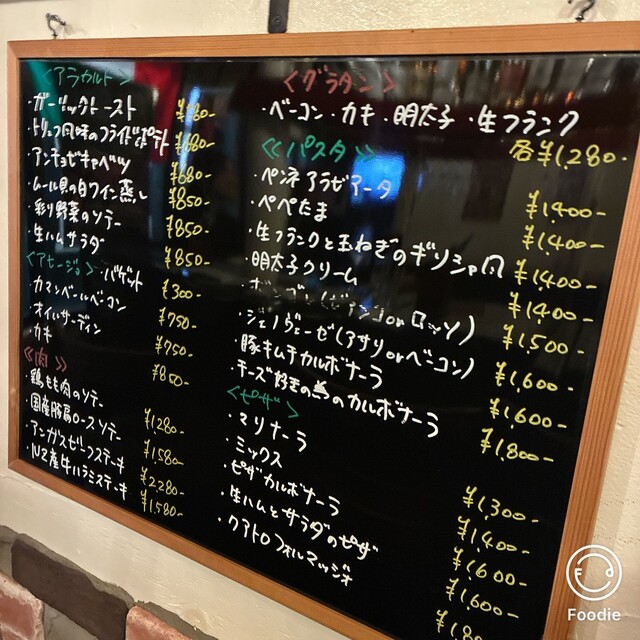 <アラカルト>
・ガーリックトースト
・トリュフ風味のフライドポテト ¥680-
・アンチョビキャベツ ¥680-
・ムール貝の白ワイン蒸し ¥850-
・彩り野菜のソテー ¥850-
・生ハムサラダ ¥850-
<アヒージョ> ・バゲット ¥300-
・カマンベールベーコン ¥750-
・オイルサーディン ¥750-
・カキ ¥850-
<肉>
・鶏もも肉のソテー ¥1,280-
・国産豚肩ロースソテー ¥1,580-
・アンガスビーフステーキ ¥2,280-
・NZ産牛ハラミステーキ ¥1,580-
<グラタン>
・ベーコン・カキ・明太子・生フランク
各¥1,280-
<<パスタ>>
・ペンネアラビアータ ¥1,400-
・ペペたま ¥1,400-
・生フランクと玉ねぎのギリシャ風 ¥1,400-
・明太子クリーム ¥1,400-
(ビアンコorロッソ) ¥1,500-
・ジェノヴェーゼ(アサリorベーコン) ¥1,600-
・豚キムチカルボナーラ ¥1,600-
・チーズ好きの為のカルボナーラ ¥1,800-
<ピザ>
・マリナーラ ¥1,300-
・ミックス ¥1,400-
・ピザカルボナーラ ¥1,600-
・生ハムとサラダのピザ ¥1,600-
・クアトロフォルマッジオ
Foodie